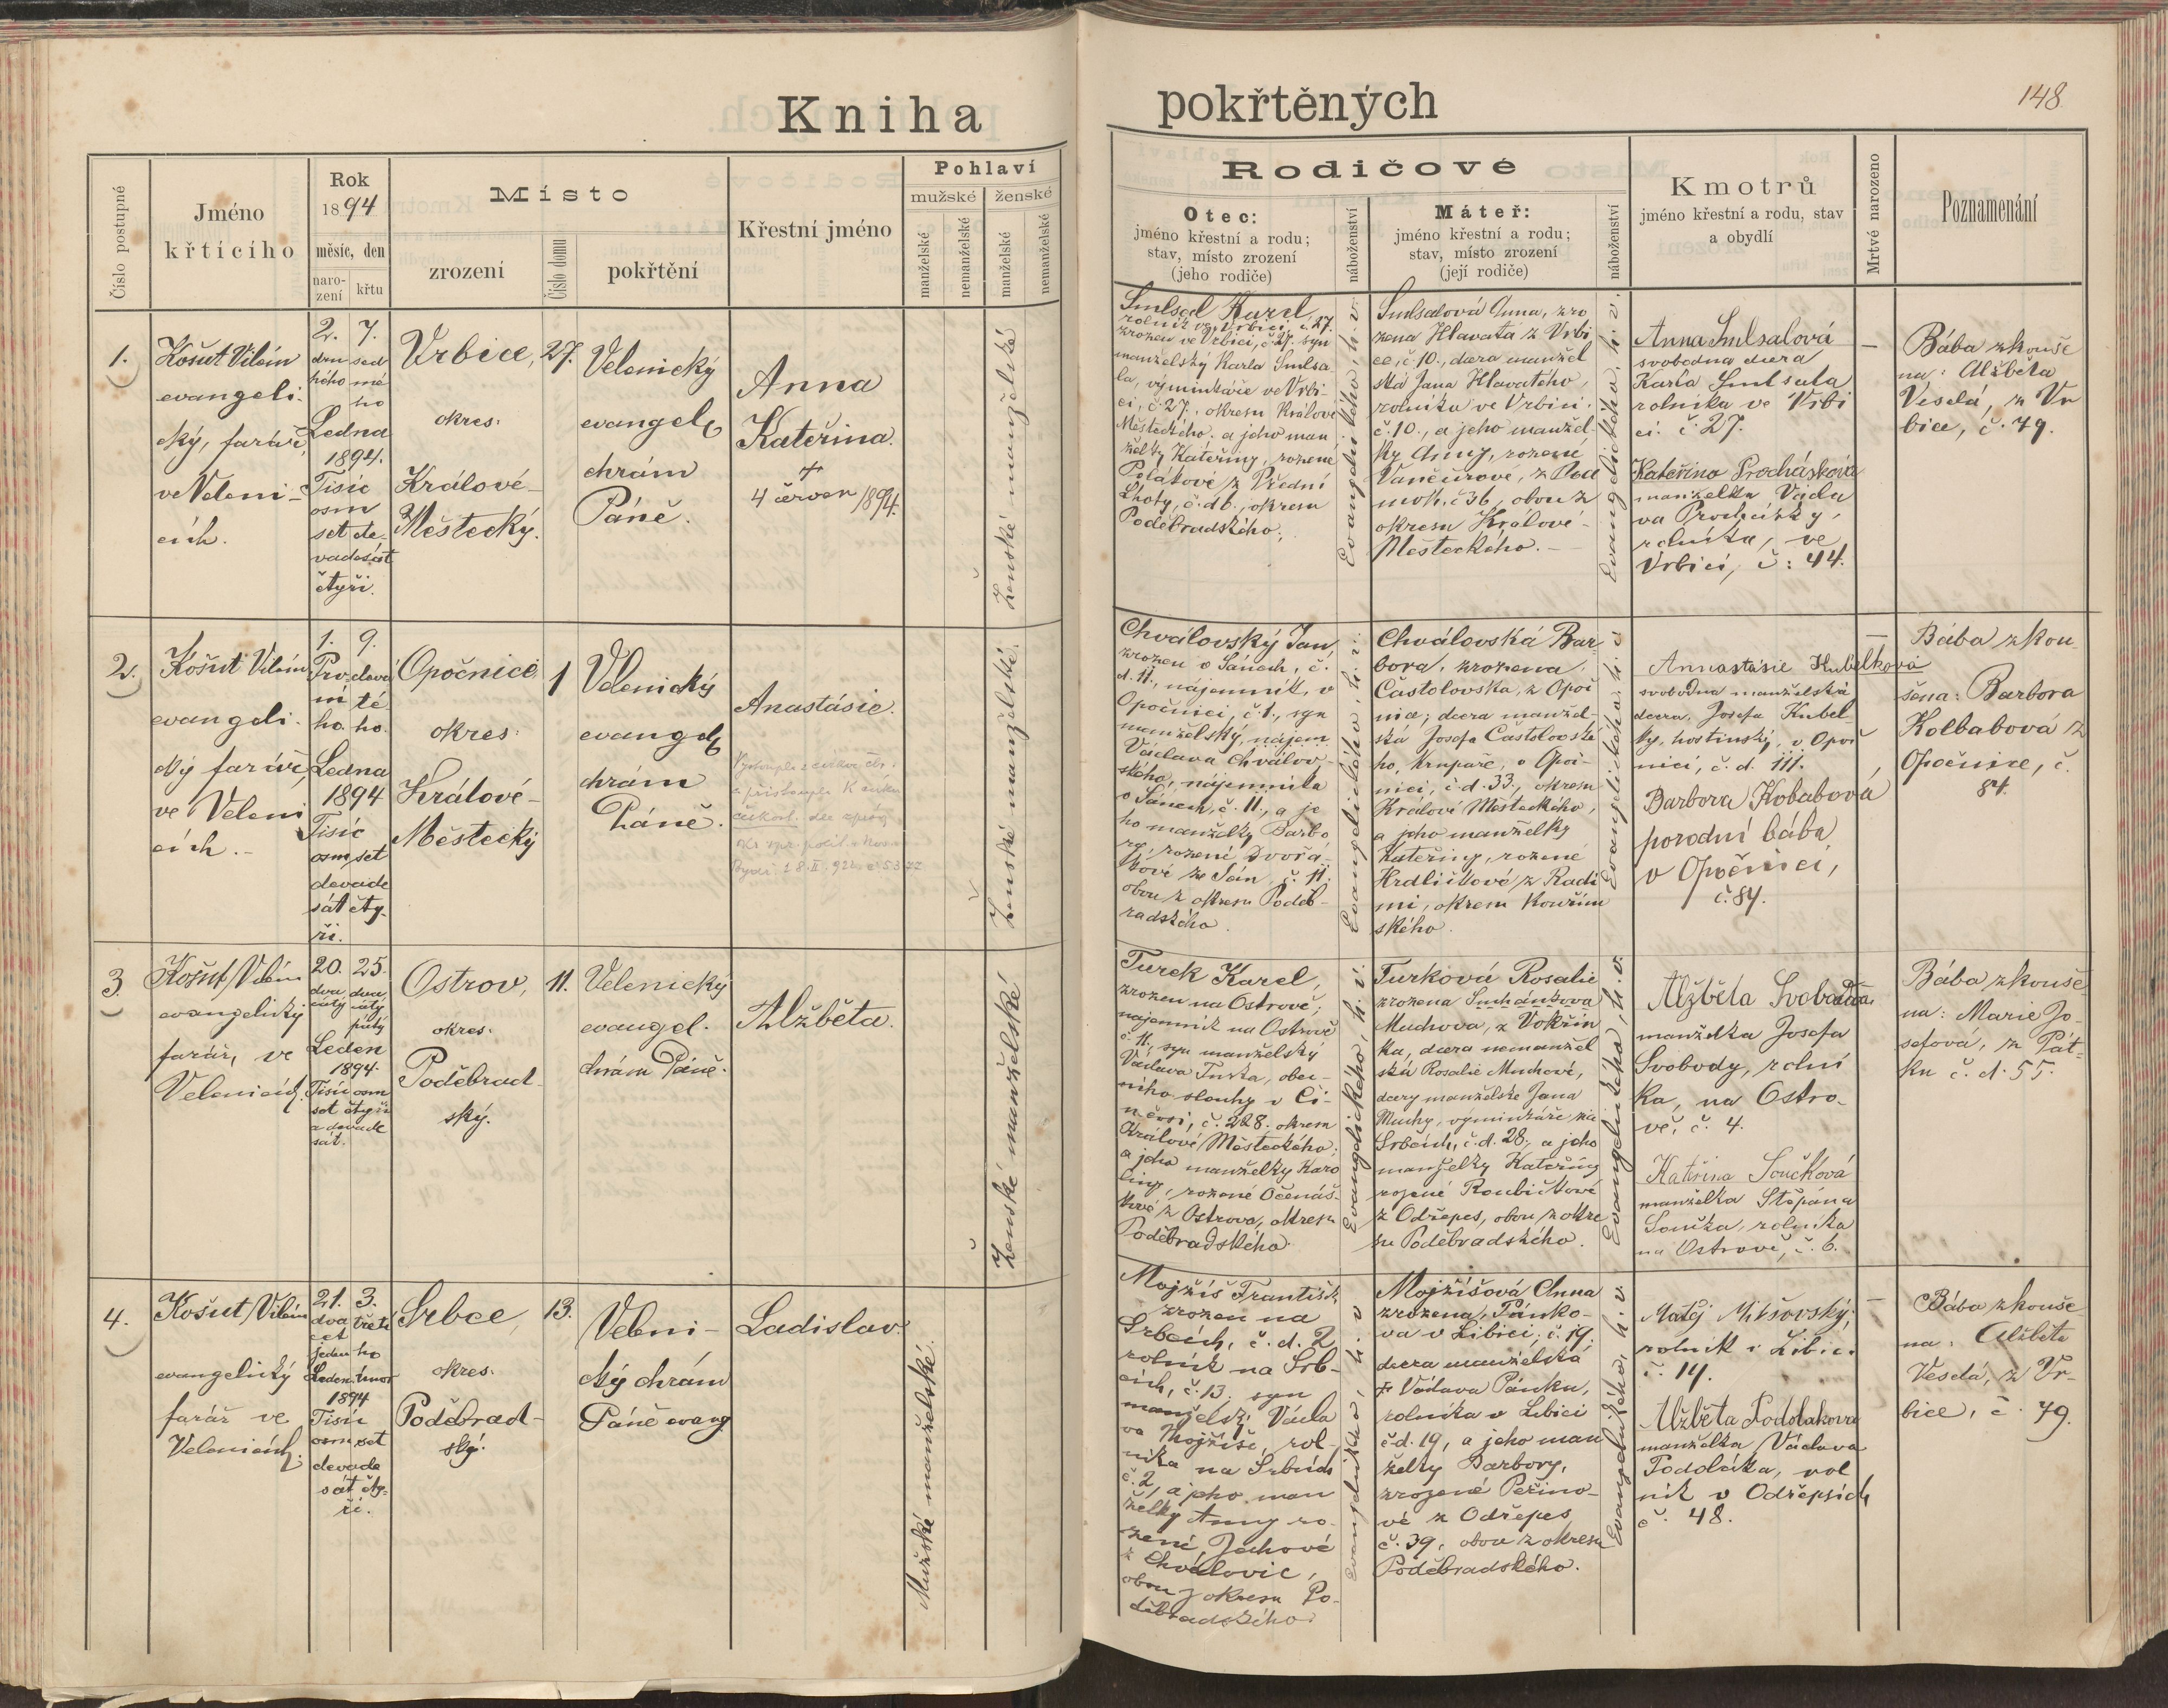 Kniha
pokřtěných
148
Číslo postupné
Jméno
křtícího
Rok
1894
měsíc, den
naro-
zení
křtu
Místo
zrození
Číslo domu
pokřtění
Křestní jméno
Pohlaví
mužské
ženské
manželské
nemanželské
manželské
nemanželské
Rodičové
Otec:
jméno křestní a rodu;
stav, místo zrození
(jeho rodiče)
náboženství
Máteř:
jméno křestní a rodu;
stav, místo zrození
(její rodiče)
náboženství
Kmotrů
jméno křestní a rodu, stav
a obydlí
Mrtvé narozeno
Poznamenání
1.
Košut Vilém
evangeli-
cký, farář,
ve Veleni-
cích.
2. 7.
dru sed
hého mé
ho
Ledna
1894.
Tisíc
osm
set de-
vadesát
čtyři.
Vrbice,
okres:
Králové-
Městecký.
27.
Velenický
evangel.
chrám
Páně.
Anna
Kateřina.
†
4 červen 1894.
Ženské manželské
Smlsal Karel,
rolník ve Vrbici, č. 27.
zrozen ve Vrbici, č. 27. syn
manželský Karla Smlsa-
la, výminkáře ve Vrbi-
ci, č. 27., okresu Králové
Městeckého, a jeho man
želky Kateřiny, rozené
Polákové z Přední
Lhoty, č. d. 6., okresu
Poděbradského.
Evangelického, h. v.
Smlsalová Anna, zro
zena Hlavatá z Vrbi
ce, č. 10., dcera manžel
ská Jana Hlavatého,
rolníka ve Vrbici.
č. 10., a jeho manžel-
ky Anny, rozené
Vančurové, z Pod
moh. č. 36, obou z
okresu Králové-
Městeckého.
Evangelického, h. v.
Anna Smlsalová
svobodna dcera
Karla Smlsala
rolníka ve Vrbi
ci. č. 27.
Kateřina Procházková
manželka Václa
va Procházky,
rolníka, ve
Vrbici, č: 44.
Bába zkouše
na: Alžběta
Veselá, z Vr
bice, č. 79.
2.
Košut Vilém
evangeli-
cký farář,
ve Veleni
cích.
1. 9.
Prv- devá
ní té
ho. ho.
Ledna
1894
Tisíc
osm set
devade
sát čty-
ři.
Opočnice
okres:
Králové-
Městecký
1
Velenický
evangel.
chrám
Páně.
Anastásie.
Ženské manželské.
Chválovský Jan,
zrozen v Sánech, č.
d. 11., nájemník, v
Opočnici, č. 1., syn
manželský, nájem
Václava Chválov-
ského, nájemníka
v Sánech, č. 11., a je
ho manželky Barbo
ry, rozené Dvořá-
kové ze Sán č. 11.
obou z okresu Poděb-
radského.
Evangelického, h. v.
Chválovská Bar
bora, zrozena
Častolovska, z Opoč
nice; dcera manžel-
ská Josefa Častolovské
ho, krupaře, v Opoč-
nici, č. d. 33., okresu
Králové Městeckého,
a jeho manželky
Kateřiny, rozené
Hrdličkové z Radi
mi, okresu Kouřim
ského.
Evangelického, h. v.
Annastásie Kubelková
svobodna manželská
dcera, Josefa Kubel-
ky, hostinský, v Opoč
nici, č. d. 111.
Barbora Kobabová
porodní bába
v Opočnici,
č. 84.
Bába zkou
šena: Barbora
Kolbabová z
Opočnice, č.
84.
3.
Košut Vilém
evangelický
farář, ve
Velenicích.
20. 25.
dva dva
cátý cátý
pátý
Leden
1894.
Tisíc osm
set čtyři
a devade
sát.
Ostrov,
okres:
Poděbrad-
ský.
11.
Velenický
evangel.
chrám Páně.
Alžběta.
Ženské manželské
Turek Karel,
zrozen na Ostrově,
nájemník na Ostrově
č. 11., syn manželský
Václava Turka, obec-
ního slouhy v Či-
něvsi, č. 228. okresu
Králové Městeckého;
a jeho manželky Karo
liny, rozené Očenáš-
kové z Ostrova, okresu
Poděbradského.
Evangelického, h. v.
Turková Rosalie
zrozena Suchánkova
Muchova, z Vokřín
ka, dcera nemanžel
ská Rosalie Muchové,
dcery manželské Jana
Muchy, výminkáře, na
Srbcích, č. d. 28., a jeho
manželky Kateřiny
rozené Roubíčkové
z Odřepes, obou z okre
su Poděbradského.
Evangelického, h. v.
Alžběta Svoboda
manželka Josefa
Svobody, rolní
ka, na Ostro-
vě, č. 4.
Kateřina Součková
manželka Štěpána
Součka, rolníka
na Ostrově, č. 6.
Bába zkouše
na: Marie Jo-
sefová, z Pát-
ku č. d. 55.
4.
Košut Vilém
evangelický
farář ve
Velenicích.
21. 3.
dva třetí
cet
jeden ho
Leden únor
1894
Tisíc
osm set
devade
sát čty-
ři.
Srbce,
okres.
Poděbrad-
ský.
13.
Veleni-
cký chrám
Páně evang.
Ladislav.
Mužské manželské.
Mojžíš František
zrozen na
Srbcích, č. d. 2
rolník na Srb-
cích, č. 13. syn
manželský Václa
va Mojžíše, rol-
níka na Srbcích
č. 2, a jeho man
želky Anny ro-
zené Jechové
z Chválovic,
obou z okresu Po-
děbradského.
Evangelického, h. v.
Mojžíšová Anna
zrozena Pánko-
va v Libici, č. 19.
dcera manželská
Václava Pánku,
rolníka v Libici
č d. 19, a jeho man
želky Barbory,
zrozené Peřino-
vé z Odřepes
č. 39, obou z okresu
Poděbradského.
Evangelického, h. v.
Matěj Mikšovský,
rolník v Libici
č. 14.
Alžběta Podolakova
manželka Václava
Podoláka, rol
ník v Odřepsích
č. 48.
Bába zkouše
na: Alžběta
Veselá, z Vr-
bice, č. 79.